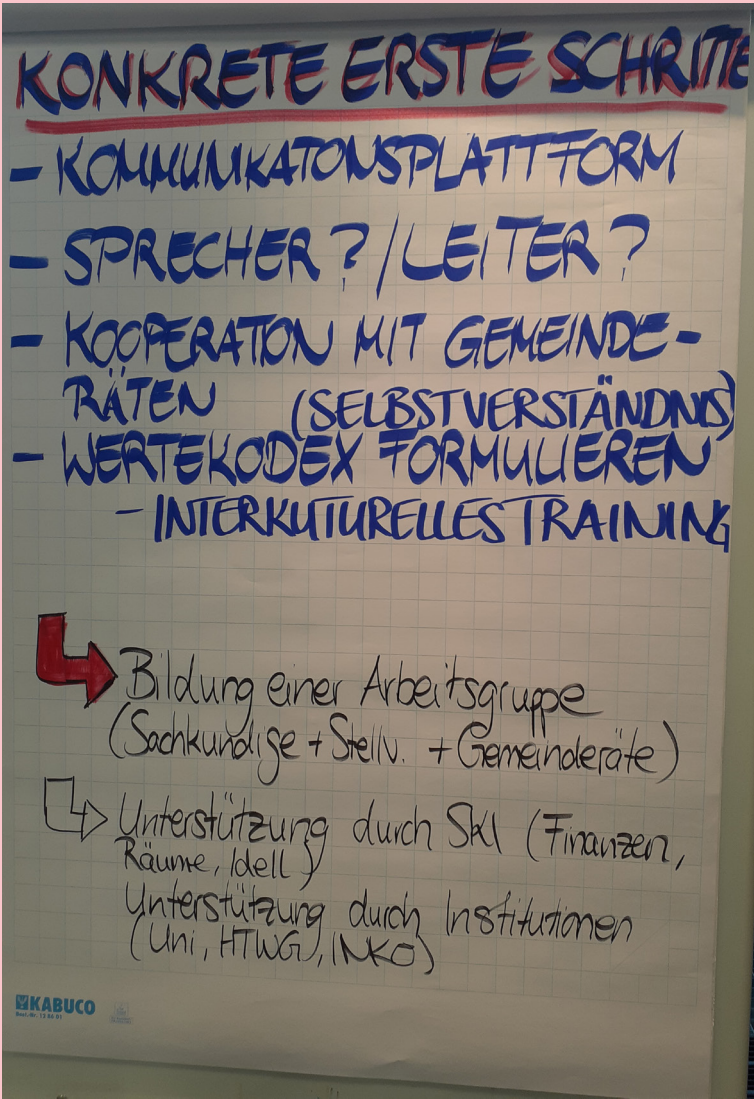 KONKRETE ERSTE SCHRITTE
- KOMMUNIKATONSPLATTFORM
- SPRECHER? / LEITER?
- KOOPERATION MIT GEMEINDE-
RÄTEN (SELBSTVERSTÄNDNIS)
- WERTEKODEX FORMULIEREN
- INTERKUTURELLES TRAINING
Bildung einer Arbeitsgruppe
(Sachkundige + Stellv. + Gemeinderäte)
Unterstützung durch SKI (Finanzen,
Räume, Idell)
Unterstützung durch Institutionen
(Uni, HTWG, INKO)
KABUCO
Best.-Nr. 13 86 01